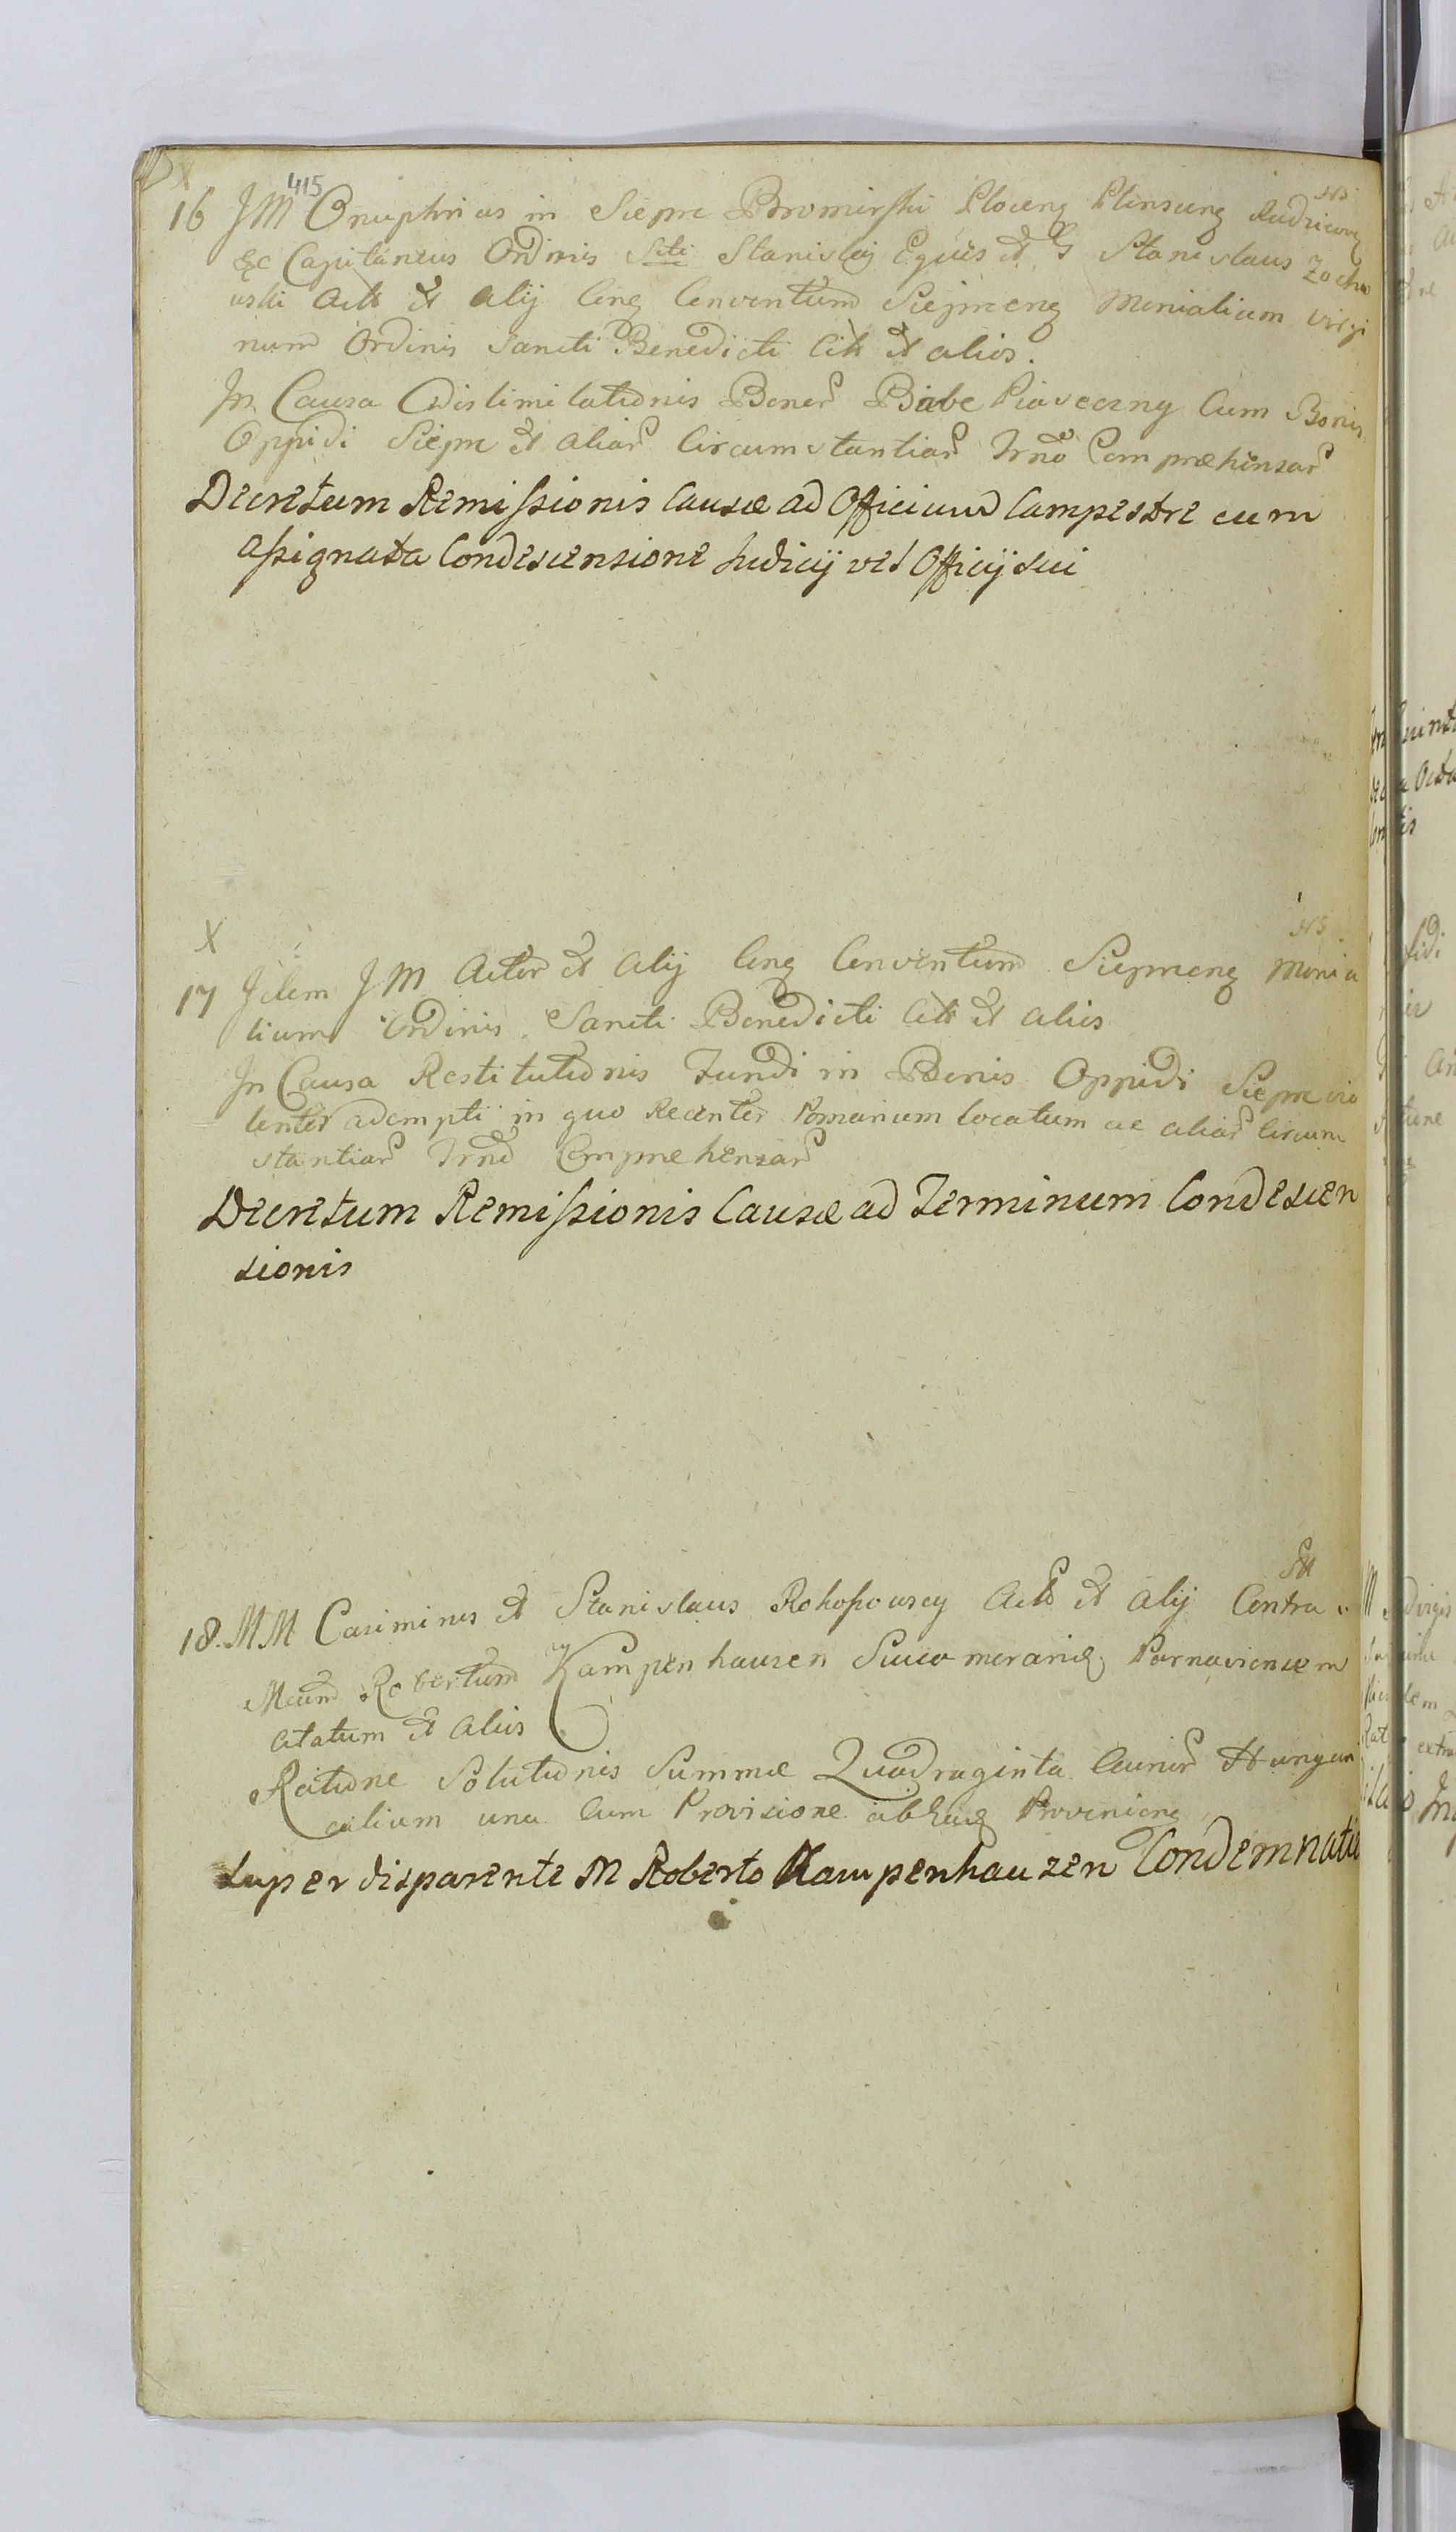 X
415
HS
16 JM Onuphrius in Sieprc Bromirski Plocens Plinscens Rudzicens
&c Capitaneus Ordinis Scti Stanislaj Eques et G Stanislaus Zocho
wski Acts et alij Cing Conventum Siepmens Monialium Virgi
num Ordinis Sancti Benedicti Cits et alios.
In Causa Dislimitationis Bonor Babc Piaseczny Cum Bonis
Oppidi Siepre et aliar Circumstantiar Trno Compræhensar
Decretum Remissionis Causæ ad Officium Campestre cum
assignata Condescensione Judicij vel Officij sui
X
HS
17 Idem JM Actor et Alij Cing Conventum Siepmens Monia
lium Ordinis Sancti Benedicti Cits et alios
In Causa Restitutionis Fundi in Bonis Oppidi Siepre vio
lenter adempti in quo Recenter Pomarium locatum ac aliar Circum
stantiar Trno Compræhensar
Decretum Remissionis Causæ ad Terminum Condescen
sionis
18. MM Casimirus et Stanislaus Rokossowscy Acts et Alij Contra
Mcum Robertum Kampenhausen Parnaviensem
Citatum et Alios
Ratione Solutionis Summæ Quadraginta Aureor Hungari
calium una Cum Provisione abhinc Proveniens
Super disparente M Roberto Kampenhauzen Condemnatio